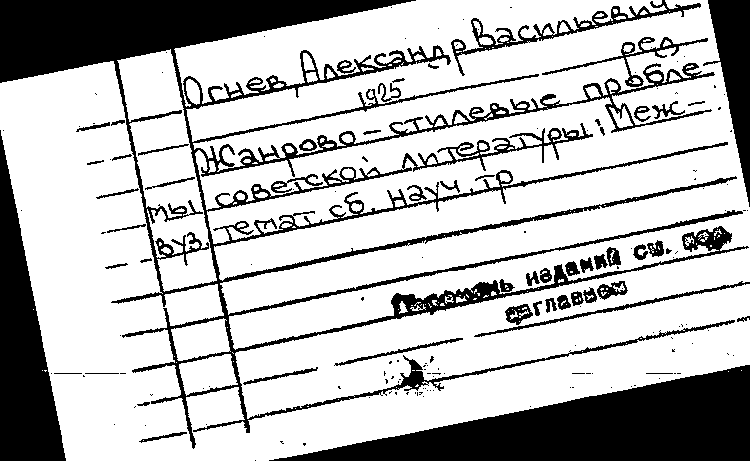 Огнев, Александр Васильевич,
1925 ред
Жанрово-стилевые пробле-
мы советской литературы: Меж-
вуз. темат. сб. науч. тр.
Перечень изданий см. под
заглавием